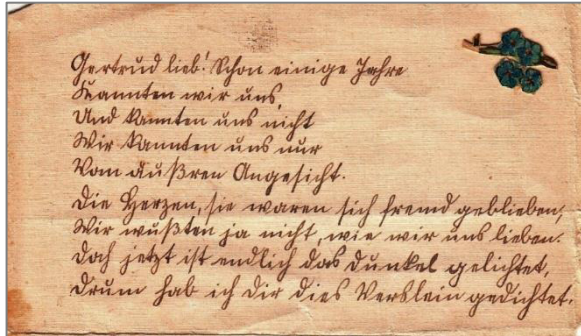 Gertrud lieb! Schon einige Jahre
Kannten wir uns,
Und kannten uns nicht
Wir kannten uns nur
Vom äußren Angesicht.
Die Herzen, sie waren sich fremd geblieben,
Wir wußten ja nicht, wie wir uns lieben.
Doch jetzt ist endlich das Dunkel gelichtet,
Drum hab ich Dir dies Verslein gedichtet.